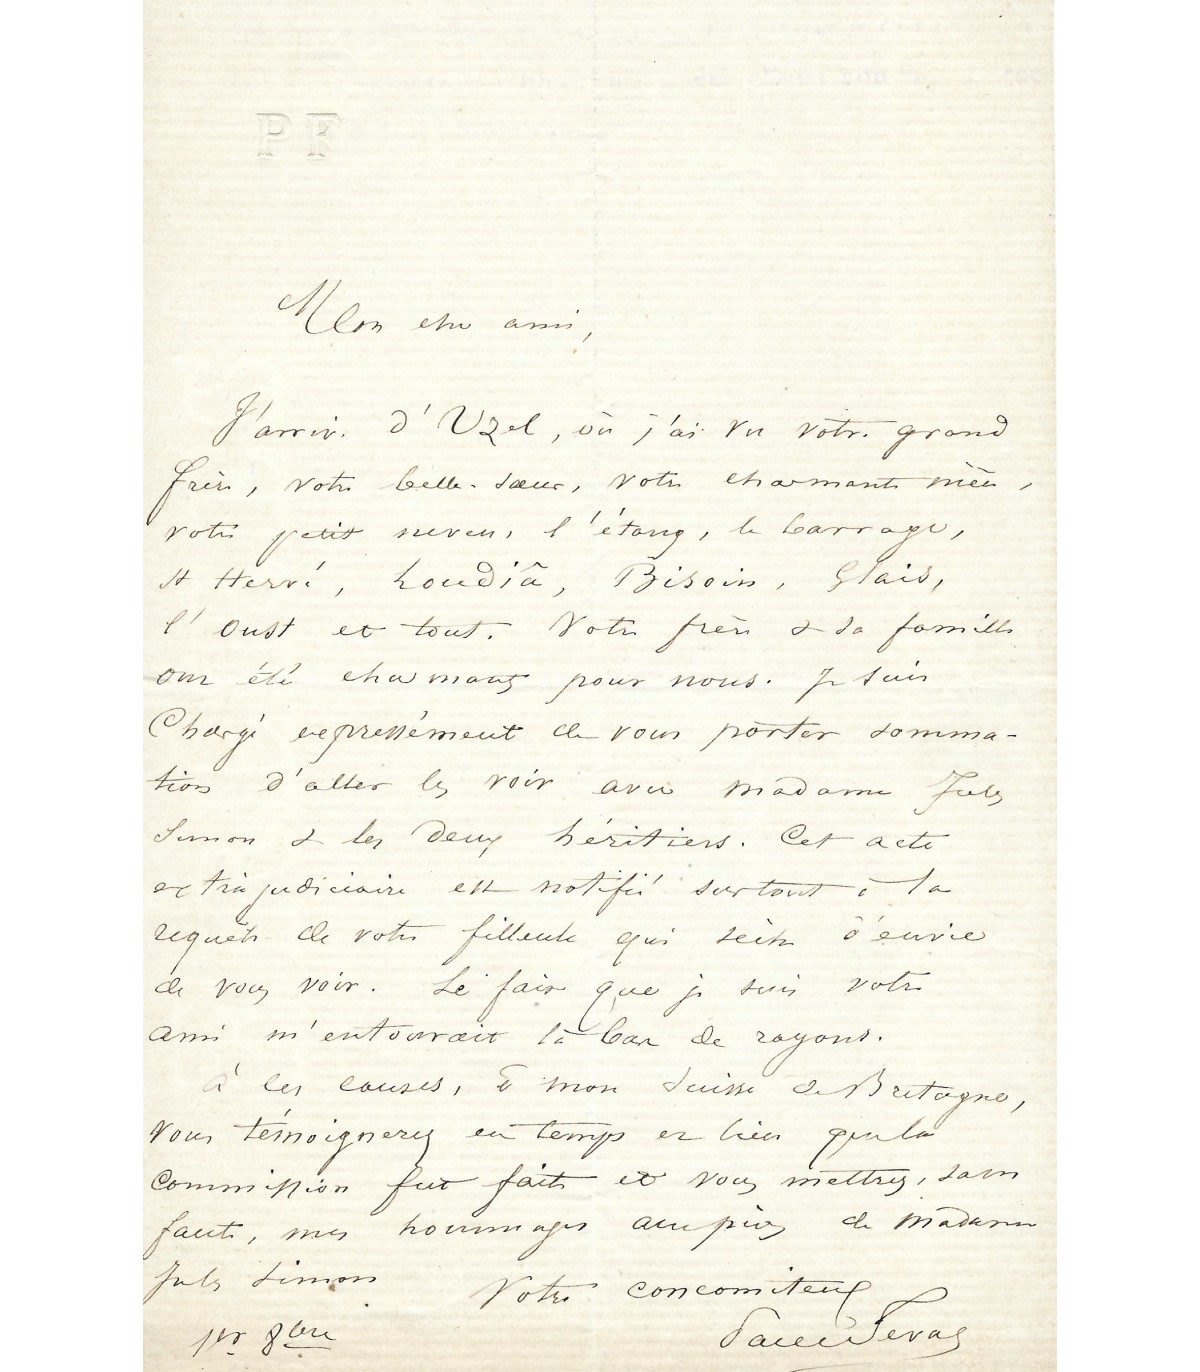 PF
Mon cher ami,
J'arrive d'Uzel, où j'ai vu votre grand
frère, votre belle-sœur, votre charmante nièce,
votre petit neveu, l'étang, le barrage,
St Hervé, Loudia, Bisoin, Glais,
l'Oust et tout. Votre frère & sa famille
ont été charmants pour nous. Je suis
Chargé expressément de vous porter somma-
tion d'aller les voir avec madame Jules
Simon & les deux héritiers. Cet acte
extrajudiciaire est notifié surtout à la
requête de votre filleule qui sèche d'envie
de vous voir. Le fait que je suis votre
ami m'entourait là bas de rayons.
À ces causes, mon Suisse de Bretagne,
vous témoignerez en temps et lieu que la
commission fut faite et vous mettrez, sans
faute, mes hommages aux pieds de Madame
Jules Simon
Votre concomiteux
Paul Féval
1er 8bre